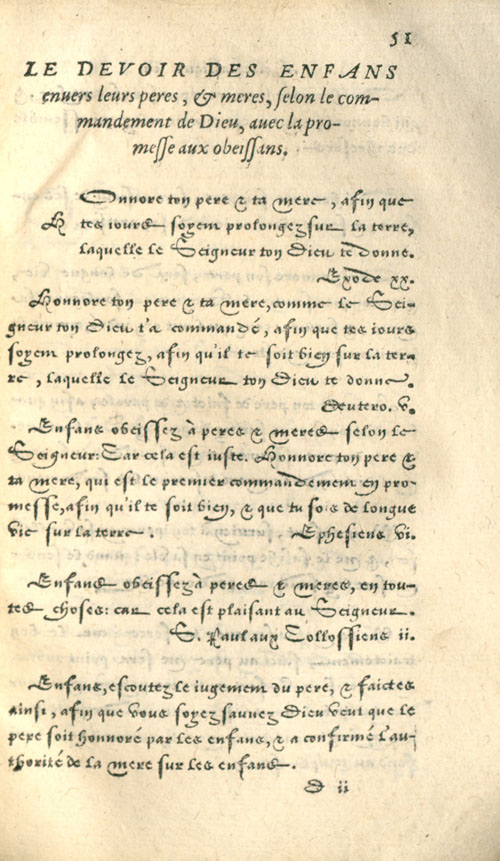 51
LE DEVOIR DES ENFANS
enuers leurs peres, & meres, selon le com-
mandement de Dieu, auec la pro-
messe aux obeissans.
Onnore ton pere & ta mere, afin que
H tes iours soyent prolongez sur la terre,
laquelle le Seigneur ton Dieu te donne.
Exode xx.
Honnore ton pere & ta mere, comme le Sei-
gneur ton Dieu t'a commandé, afin que tes iours
soyent prolongez, afin qu'il te soit bien sur la ter-
re, laquelle le Seigneur ton Dieu te donne.
Deutero. v.
Enfans obeissez à peres & meres selon le
Seigneur: Car cela est iuste. Honnore ton pere &
ta mere, qui est le premier commandement en pro-
messe, afin qu'il te soit bien, & que tu sois de longue
vie sur la terre. Ephesiens vi.
Enfans obeissez à peres & meres, en tou-
tes choses: car cela est plaisant au Seigneur.
S. Paul aux Collossiens ii.
Enfans, escoutez le iugement du pere, & faictes
ainsi, afin que vous soyez sauuez Dieu veut que le
pere soit honnoré par les enfans, & a confirmé l'au-
thorité de la mere sur les enfans.
d ii